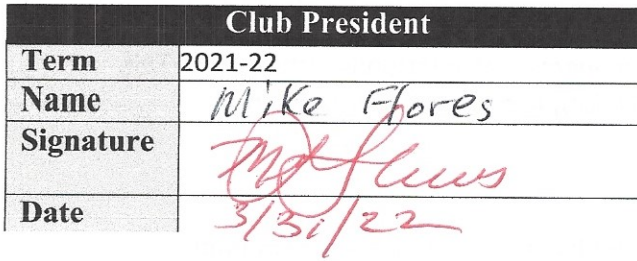 Club President
Term 2021-22
Name Mike Flores
Signature
Date 3/31/22